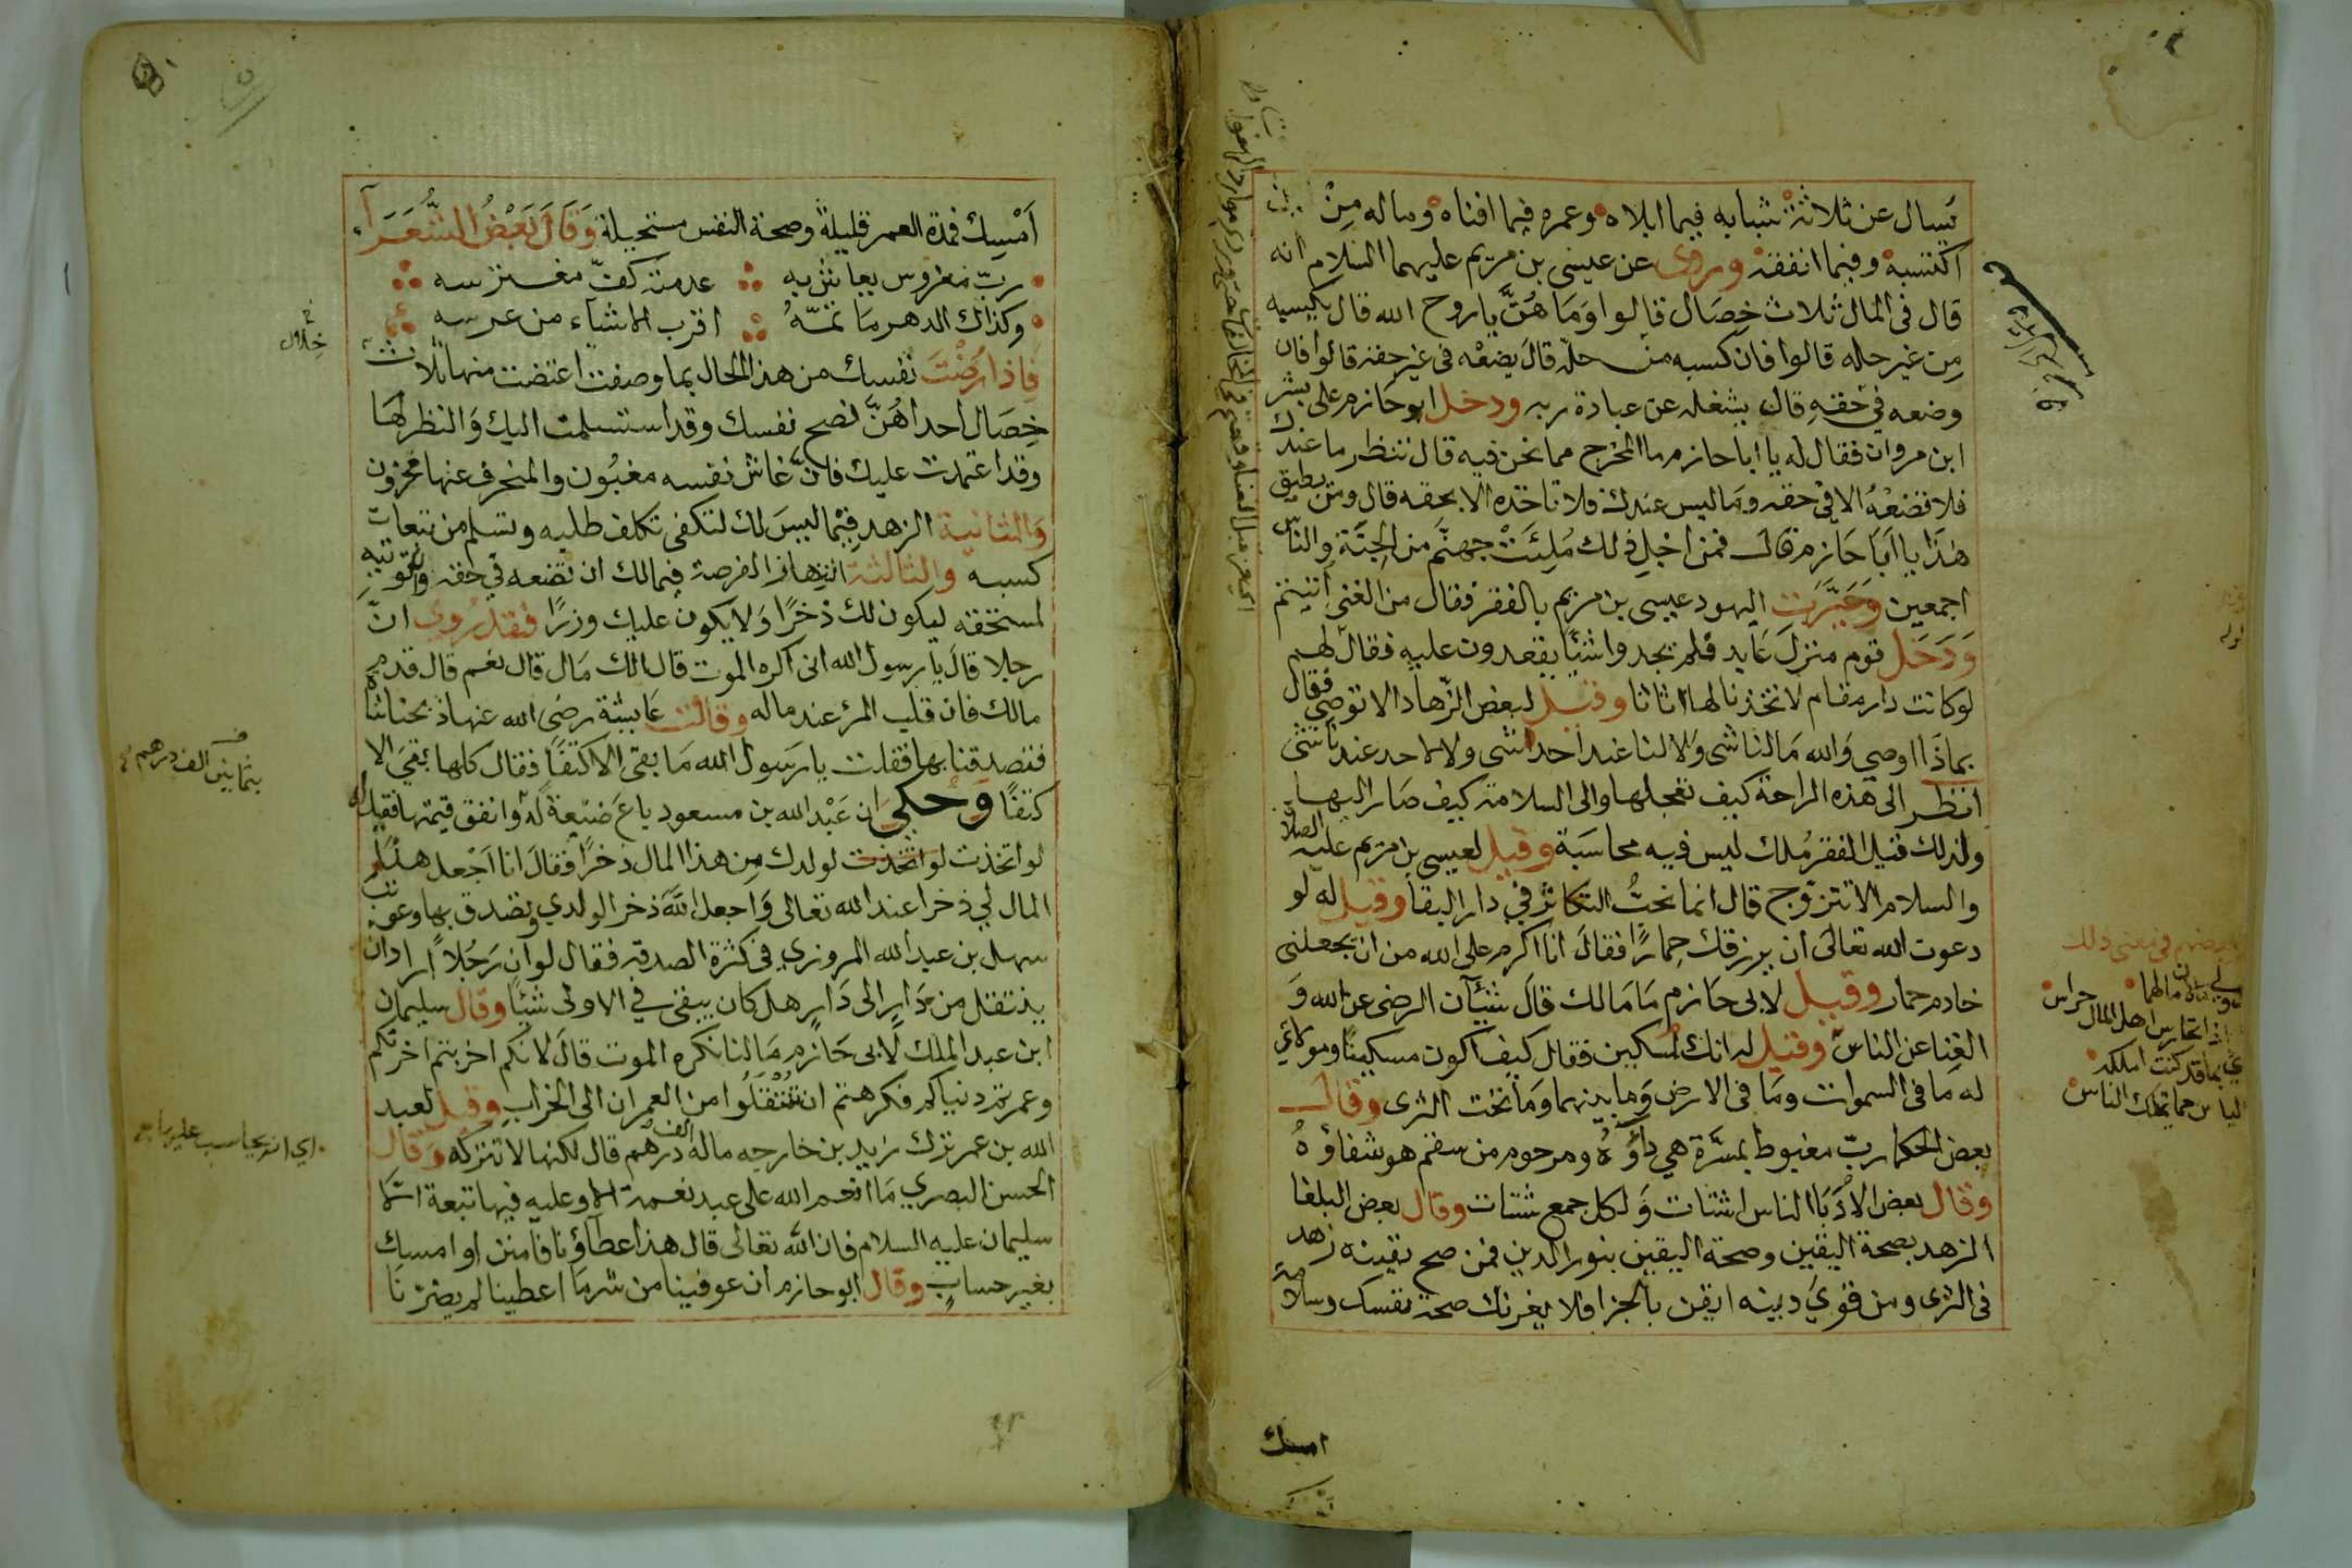 يسال عن ثلاثة شبابه فيما ابلاه وعمره فيما افناه وماله مِنْ
اكتسبه وفيما انفقه وروى عن عيسى بن مريم عليهما السلام انه
قال فى المال ثلاث خِصَال قالوا وَمَا هُنَّ ياروح الله قال يكسبه
مِن غير حله قالوا فان كسبه من حلّه قالَ يضعْه فى غير حقه قالوا فان
وضعه في حَقهِ قال يشغله عن عبادة ربه ودخل ابو حازم على بشر
ابن مروان فقال له يا ابا حازم ما المخرج مما نحن فيه قال تنظر ما عندك
فلا تضعْهُ الا في حقه وَمَا ليس عندك فلا تاخذه الا بحقه قال ومن يطيق
هٰذَا يا اَبَا حَازم قال فمن اجْلِ ذلك مُلِئَتْ جهنّم من الجِنَّة والناس
اجمعين وَعَيَّرَت اليهود عيسى بن مريم بالفقر فقال من الغنى اُتيتم
وَدَخَل قوم منزلَ عَابد فلم يجدوا شيًا يقعدون عليه فقال لهم
لو كانت دار مقام لاتخذنا لها اثاثا وقيل لبعض الزّهاد الا توصي فقال
بماذَا اوصي وَالله مَا لنا شى وَلا لنا عند احد شى ولا لاحد عندنا شى
انظر الى هذه الراحة كيف تعجلها والى السلامة كيف صَار اليها
ولذلك قيل الفقر مُلك ليس فيه محاسَبة وقيل لعيسى بن مريم عليه الصلاة
والسلام الا تتزوج قال انما نحبُّ التكاثر في دار البقا وقيل له لو
دعوت الله تعالىَ ان يرزقك حِمارًا فقالَ انا اكرم على الله من ان يجعلنى
خادم حمار وقيل لابى حَازم مَا مَالك قالَ شيآن الرضى عن الله وَ
الغِنا عن الناس وقيل له انك لمسكين فقال كيف اكون مسكينًا ومولاي
له مَا فى السموات ومَا فى الارض وَما بينهما ومَا تحت الثرى وقال
بعض الحكما ربّ مغبوط بمسَّرة هي دَاؤُهُ ومرحوم من سقم هو شفاؤهُ
وقال بعض الأدَبَا الناس اشتات وَلكل جمع شتات وقال بعض البلغا
الزهد بصحة اليقين وصحة اليقين بنور الدين فمن صح يقينه زهد
فى الثرى ومن قوىَ دينه ايقن بالجزا فلا يغرنك صحة نفسك وسلامة
امسك
اَمْسِك فمدة العمر قليلة وصحة النفس مستحيلة وَقَالَ بَعْضُ الشُّعَرَآء
ربّ مغروس يعاش به عدمته كفّ مغترسه
وكذاك الدهر مَا تمّهُ اقرب الاشياء من عرسه
فاِذا رُضْتَ نفسك من هذا الحال بما وصفت اعتضت منها ثلاث
خلال
خِصَال احداهُنّ نصح نفسك وقد استسلمت اليك وَالنظر لهَا
وقد اعتمدت عليك فانّ غاش نفسه مغبُون والمنحرف عنها محزون
وَالثانية الزهد فيْما ليسَ لك لتكفى تكلف طلبه وتسلم من تبعات
كسبه والثالثة انتهاز الفرصة فيمالك ان تضعه في حقه وان تؤتيهِ
لمستحقه ليكون لك ذخرًا وَلا يكون عليك وزرًا فقد رُوى انّ
رجلا قالَ يا رسول الله انى اكره الموت قال الك مَال قال نعم قال قدم
مالك فان قلب المرْء عند ماله وقالت عَايشة رضى الله عنها ذبحنا شاة
فتصدقنا بها فقلت يا رسَول الله مَا بقى الا كتفًا فقال كلها بقىَ الا
بثمانين الف درهم
كتفًا وَحُكي ان عَبْد الله بن مسعود باعَ ضيْعة لهُ وانفق قيمتها فقيل له
لو اتخذت لو اتخذت لولدك مِن هذا المال ذخرًا فقالَ انا اَجْعل هٰذا
المال لي ذخرا عند الله تعالى وَاجعل اللّه ذخرا لولدي وتصدق بها وعوتب
سهل بن عبد الله المروزي فى كثرة الصدقه فقال لو ان رَجُلًا اراد ان
ينتقل من دَارٍ الى دَارٍ هل كان يبقى في الاولى شيئًا وقال سليمان
ابن عبد الملك لابى حَازم مَا لنا نكره الموت قالَ لانكم اخربتم اخرتكم
وعمرتم دنياكم فكرهتم ان تنتقلوا من العمران الى الخراب وقيل لعبد
الله بن عمر ترك زيد بن خارجه ماله الف درهم قال لكنها لا تتركه وقال
الحسن البصري مَا انعم الله على عبد نعمة الا وعليه فيها تبعة الّا
سليمان عليه السلام فان الله تعالى قال هذا عطاؤنا فامنن او امسك
بغير حسابٍ وقال ابو حازم ان عوفينا من شر مَا اعطينا لم يضرّنا